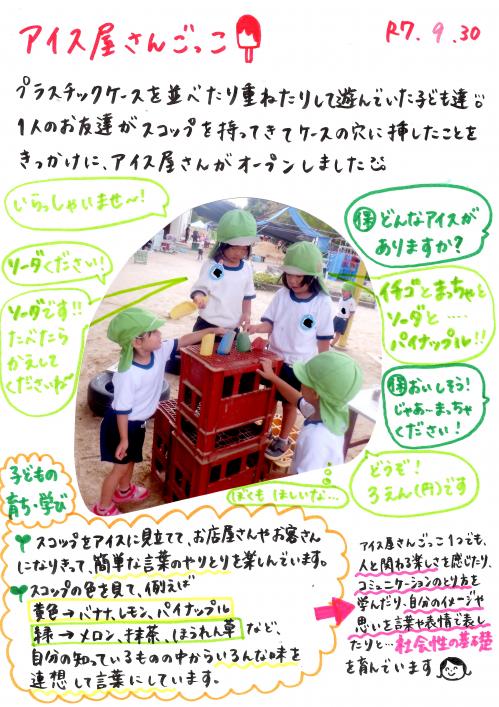 アイス屋さんごっこ
R7.9.30
プラスチックケースを並べたり重ねたりして遊んでいた子ども達
1人のお友達がスコップを持ってきてケースの穴に挿したことを
きっかけに、アイス屋さんがオープンしました
いらっしゃいませ〜!
ソーダください!
ソーダです!!
たべたら
かえして
くださいね
保 どんなアイスが
ありますか?
イチゴとまっちゃと
ソーダと……
パイナップル!!
保 おいしそう!
じゃあ〜まっちゃ
ください!
どうぞ!
3えん(円)です
ぼくも ほしいな…
子どもの
育ち・学び
スコップをアイスに見立てて、お店屋さんやお客さん
になりきって、簡単な言葉のやりとりを楽しんでいます。
スコップの色を見て、例えば
黄色→バナナ、レモン、パイナップル
緑→メロン、抹茶、ほうれん草 など、
自分の知っているものの中からいろんな味を
連想して言葉にしています。
アイス屋さんごっこ1つでも、
人と関わる楽しさを感じたり、
コミュニケーションのとり方を
学んだり、自分のイメージや
思いを言葉や表情で表し
たりと…社会性の基礎
を育んでいます